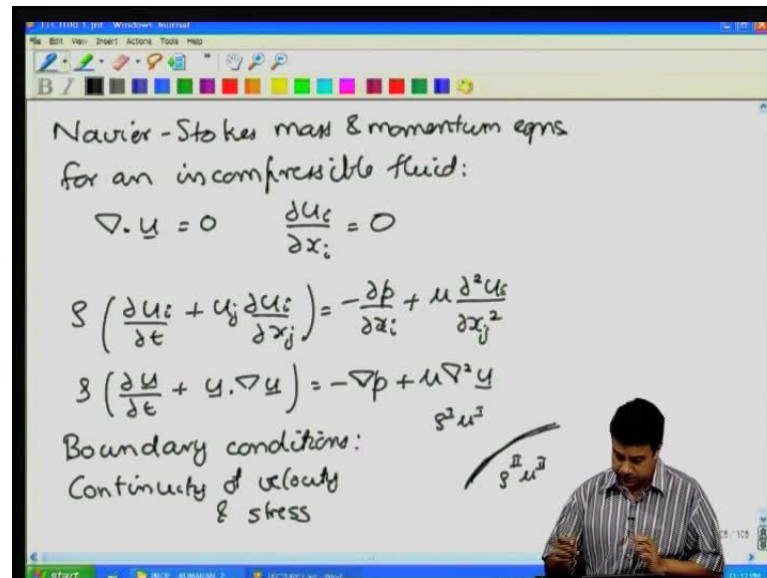 LECTURE 1.jnt - Windows Journal
File Edit View Insert Actions Tools Help
B I
Navier-Stokes mass & momentum eqns
for an incompressible fluid:
∇. u = 0    ∂ui/∂xi = 0
ρ (∂ui/∂t + uj ∂ui/∂xj) = -∂p/∂xi + μ ∂²ui/∂xj²
ρ (∂u/∂t + u.∇u) = -∇p + μ∇²u
ρᴵ μᴵ
Boundary conditions:
ρᴵᴵ μᴵᴵ
Continuity of velocity
& stress
start